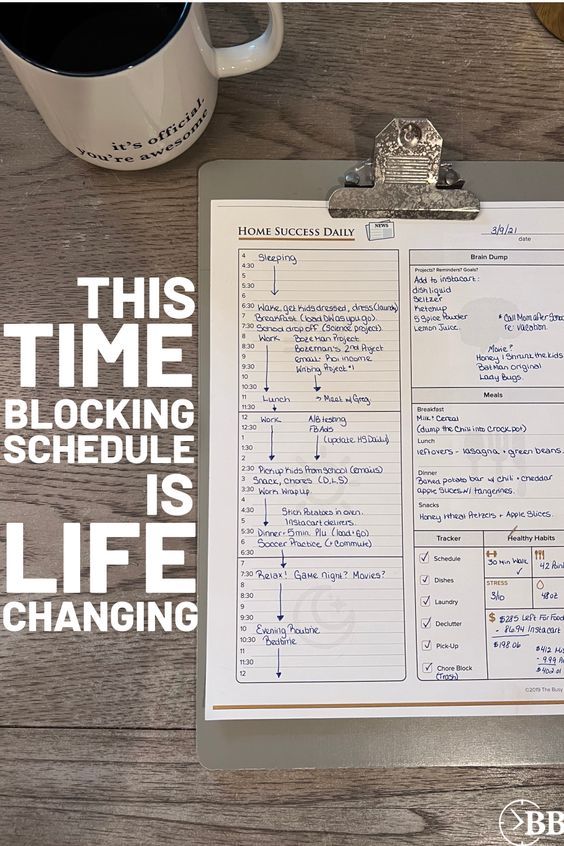 it's official.
you're awesome
THIS
TIME
BLOCKING
SCHEDULE
IS
LIFE
CHANGING
HOME SUCCESS DAILY
NEWS
3/9/21
date
4 Sleeping
4:30
5
5:30
6
6:30 Wake, get kids dressed, dress (laundry)
7 Breakfast (load DW as you go)
7:30 School drop off (Science project)
8 Work Bozeman Project
8:30 Bozeman's 2nd Project
9 email: Roi income
9:30 Writing Project #1
10
10:30
11 Lunch → Meet w/ Greg
11:30
12 Work A/B testing
12:30 FB Ads
1 (update HS Daily)
1:30
2
2:30 Pickup kids from school (emails)
3 Snack, Chores (D,L,S)
3:30 Work Wrap up
4
4:30 Stick Potatoes in oven.
5 Instacart delivers.
5:30 Dinner + 5 min. P/u (load + go)
6 Soccer Practice (+ commute)
6:30
7
7:30 Relax! Game night? Movies?
8
8:30
9
9:30
10 Evening Routine
10:30 Bedtime
11
11:30
12
Brain Dump
Projects? Reminders? Goals?
Add to instacart:
dish liquid
Seltzer
Ketchup
5 Spice Powder
Lemon Juice.
* Call Mom after School
re: Vacation.
Movie?
Honey I Shrunk the kids
Batman original
Lady Bugs.
Meals
Breakfast
Milk + Cereal
(dump the Chili into Crockpot)
Lunch
leftovers - lasagna + green beans.
Dinner
Baked potato bar w/ chili + cheddar
apple slices w/ tangerines.
Snacks
Honey Wheat Pretzels + Apple Slices.
Tracker
✓ Schedule
✓ Dishes
✓ Laundry
✓ Declutter
✓ Pick-Up
✓ Chore Block
(Trash)
Healthy Habits
30 min Walk
✓
42 Points
STRESS
3/10
48oz
$ $285 Left For Food
- 86.94 Instacart
$198.06
$412
- 9.99
$402.01
©2019 The Busy
BB